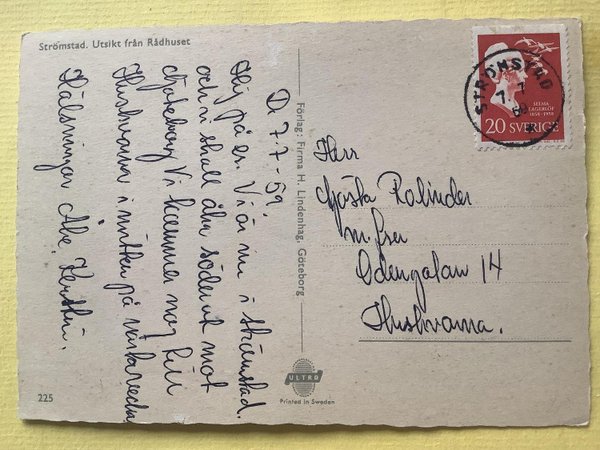 Strömstad. Utsikt från Rådhuset
D. 7.7-59.
Hej på er. Vi är nu i Strömstad.
och vi skall åka söderut mot
Göteborg Vi kommer nog till
Huskvarna i mitten på nästa vecka
Hälsningar Kerstin.
Förlag: Firma H. Lindenhag, Göteborg
Herr
Gösta Rolinder
m. fru
Odengatan 14
Huskvarna.
STRÖMSTAD
7 7
SELMA
LAGERLÖF
1858-1958
20 SVERIGE
ULTRA
Printed in Sweden
225